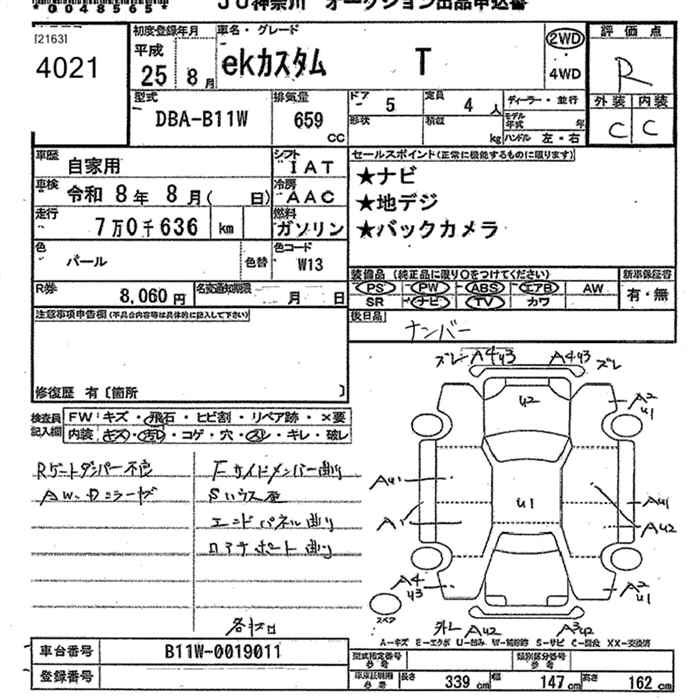 *00485​65*
JU神奈川 オークション出品申込書
[2163]
4021
初度登録年月
平成
25 8月
車名・グレード
ekカスタム T
2WD
・
4WD
評価点
R
外装 内装
C C
型式
DBA-B11W
排気量
659
CC
ドア 5
定員 4 人
形状
積載 kg
ディーラー・並行
モデル年式 年
ハンドル 左・右
車歴
自家用
シフト
IAT
車検
令和 8年 8月( 日)
冷房
AAC
走行
7万0千636 km
燃料
ガソリン
色
パール
色替
色コード
W13
R券
8,060円
名変通知期限
月 日
セールスポイント(正常に機能するものに限ります)
★ナビ
★地デジ
★バックカメラ
装備品 (純正品に限り○をつけてください)
PS PW ABS エアB AW
SR ナビ TV カワ
新車保証書
有・無
後日品
ナンバー
注意事項申告欄(不具合内容等は具体的に記入して下さい)
修復歴 有〔箇所 〕
検査員記入欄
FW キズ・飛石・ヒビ割・リペア跡・×要
内装 キズ・汚レ・コゲ・穴・スレ・キレ・破レ
Rゲートダンパー不良
Fサイドメンバー曲り
エンドパネル曲り
ズレ A4U3 A4U3 ズレ
U2
A2
U1
AU1
U1
AU1
A
AU2
A4
U3
A2
U1
スペア
外レ AU2 A3U2
A-キズ E-エクボ U-凹み W-補修跡 S-サビ C-腐食 XX-交換済
車台番号
B11W-0019011
登録番号
型式指定番号
参考
類別区分番号
参考
車庫証明用
参考
長さ 339 cm
幅 147 cm
高さ 162 cm